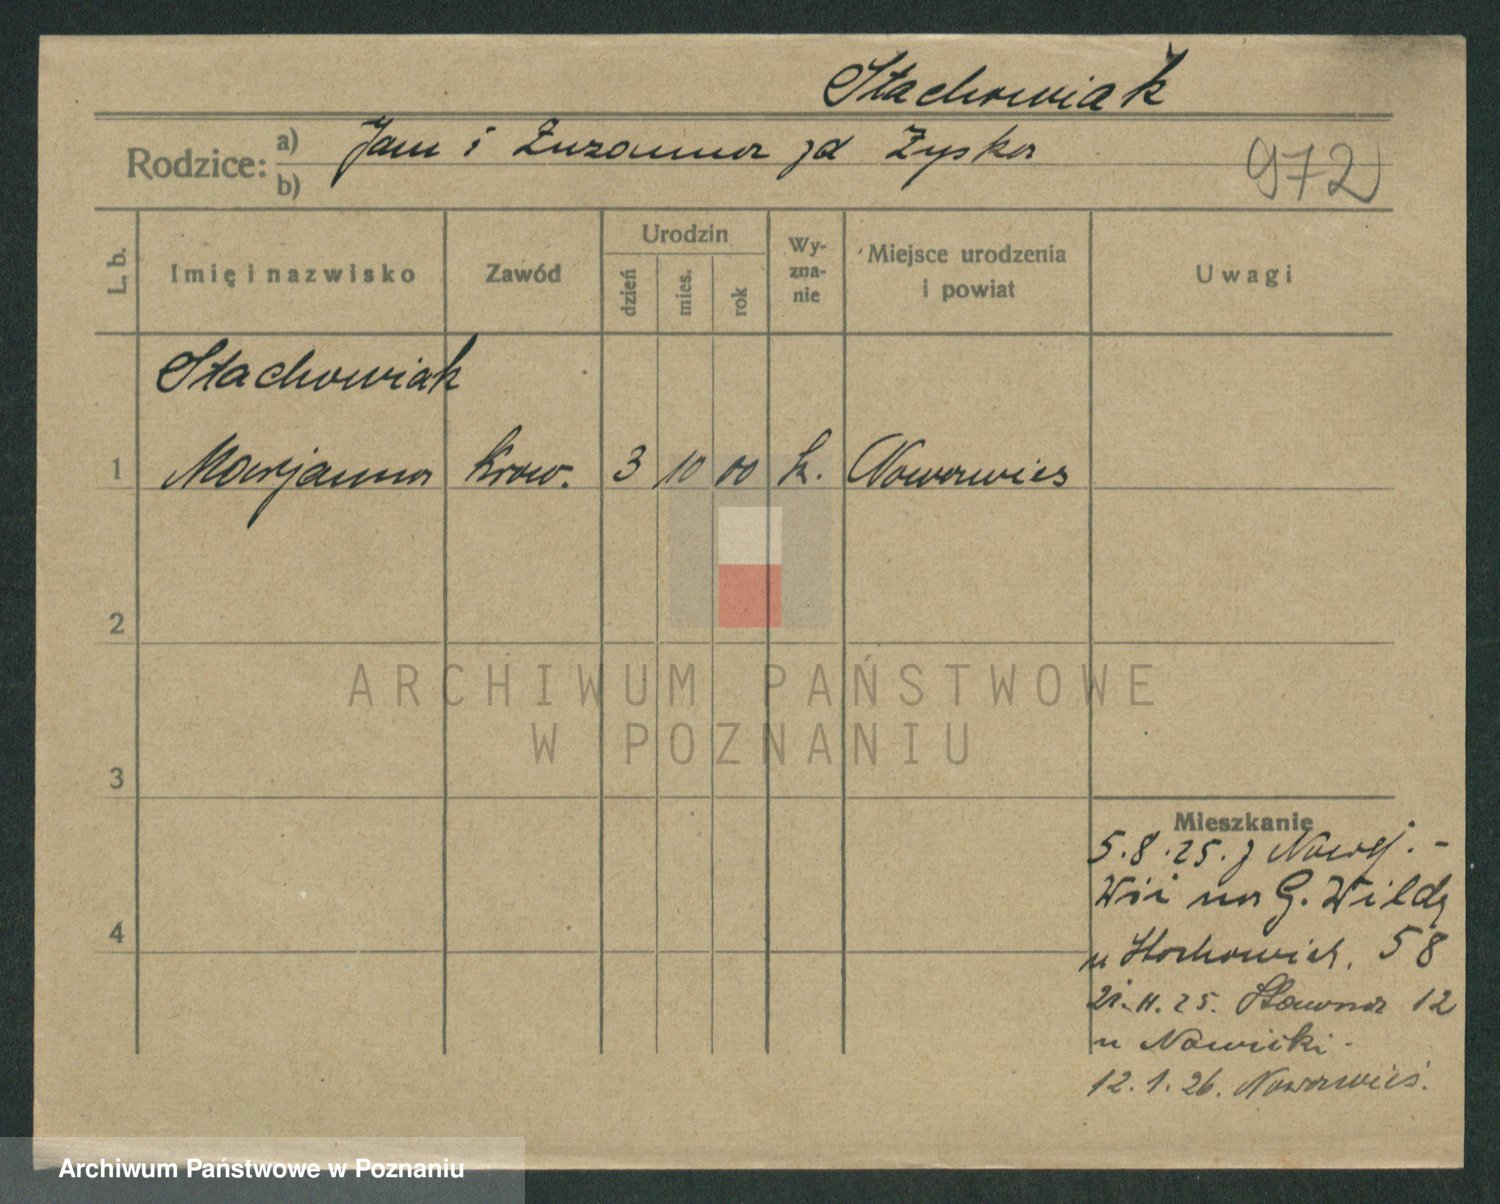 Stachowiak
Rodzice: a) Jan i Zuzanna zd Zyska
b)
972
L. b.
Imię i nazwisko
Zawód
Urodzin
dzień
mies.
rok
Wy-
zna-
nie
Miejsce urodzenia
i powiat
Uwagi
Stachowiak
1 Marjanna kraw. 3 10 00 k. Nowawies
2
3
4
Mieszkanie
5.8.25. z Nowej.-
Wsi na G. Wildę
u Stachowiak. 58
21.11.25. Sławna 12
u Nowicki-
12.1.26. Nowawieś.
ARCHIWUM PAŃSTWOWE
W POZNANIU
Archiwum Państwowe w Poznaniu